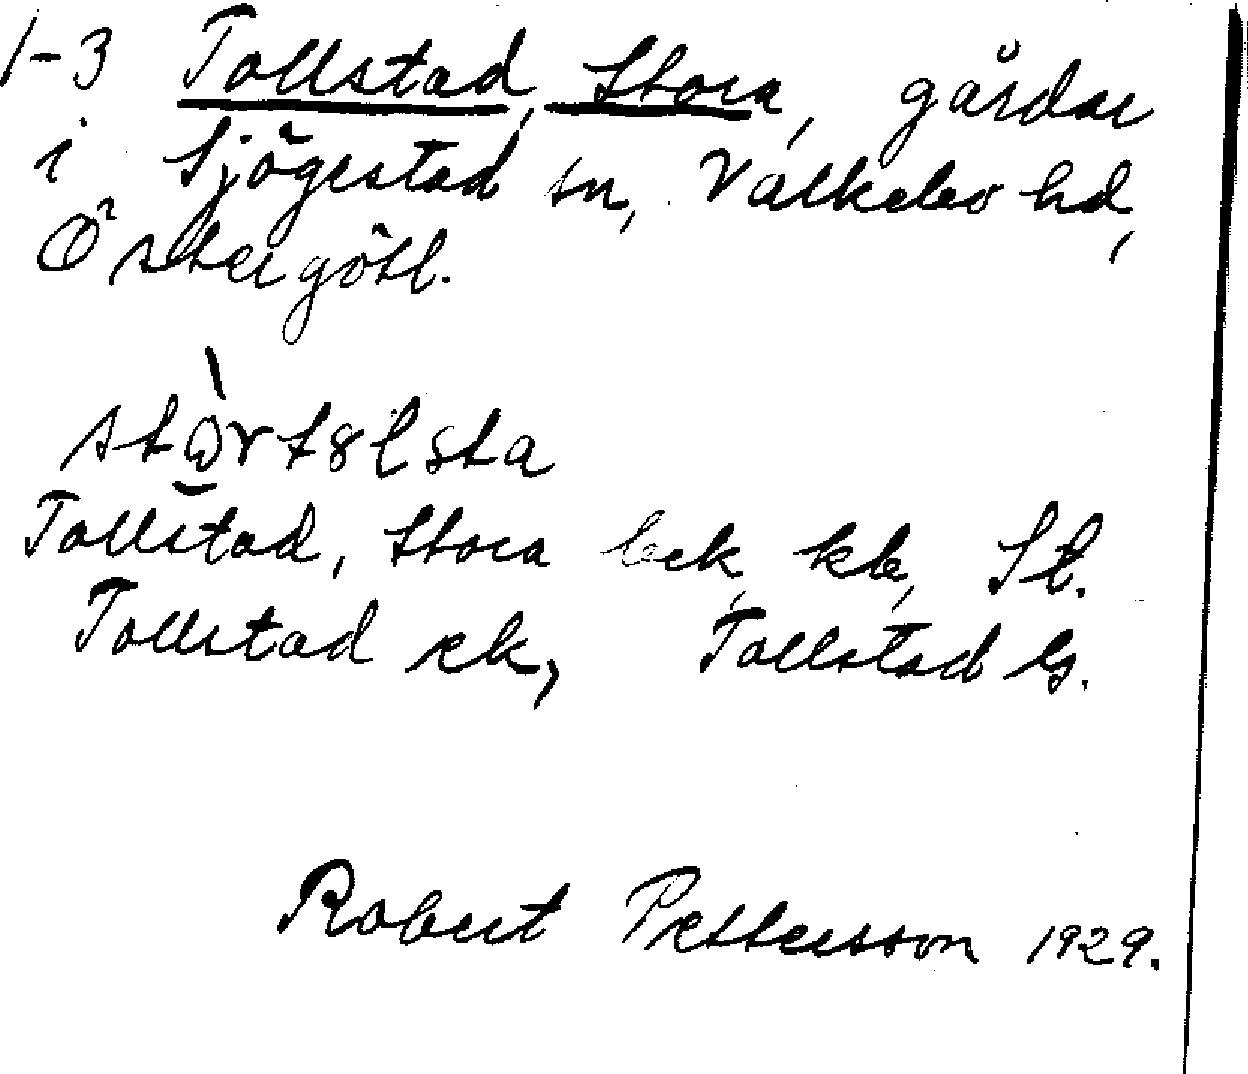 1-3 Tollstad, Stora, gårdar
i Sjögestad sn, Valkebo hd,
Östergötl.
Tollstad, Stora bek, kb, St.
Tollstad ek, Tollstad G.
Robert Pettersson 1929.